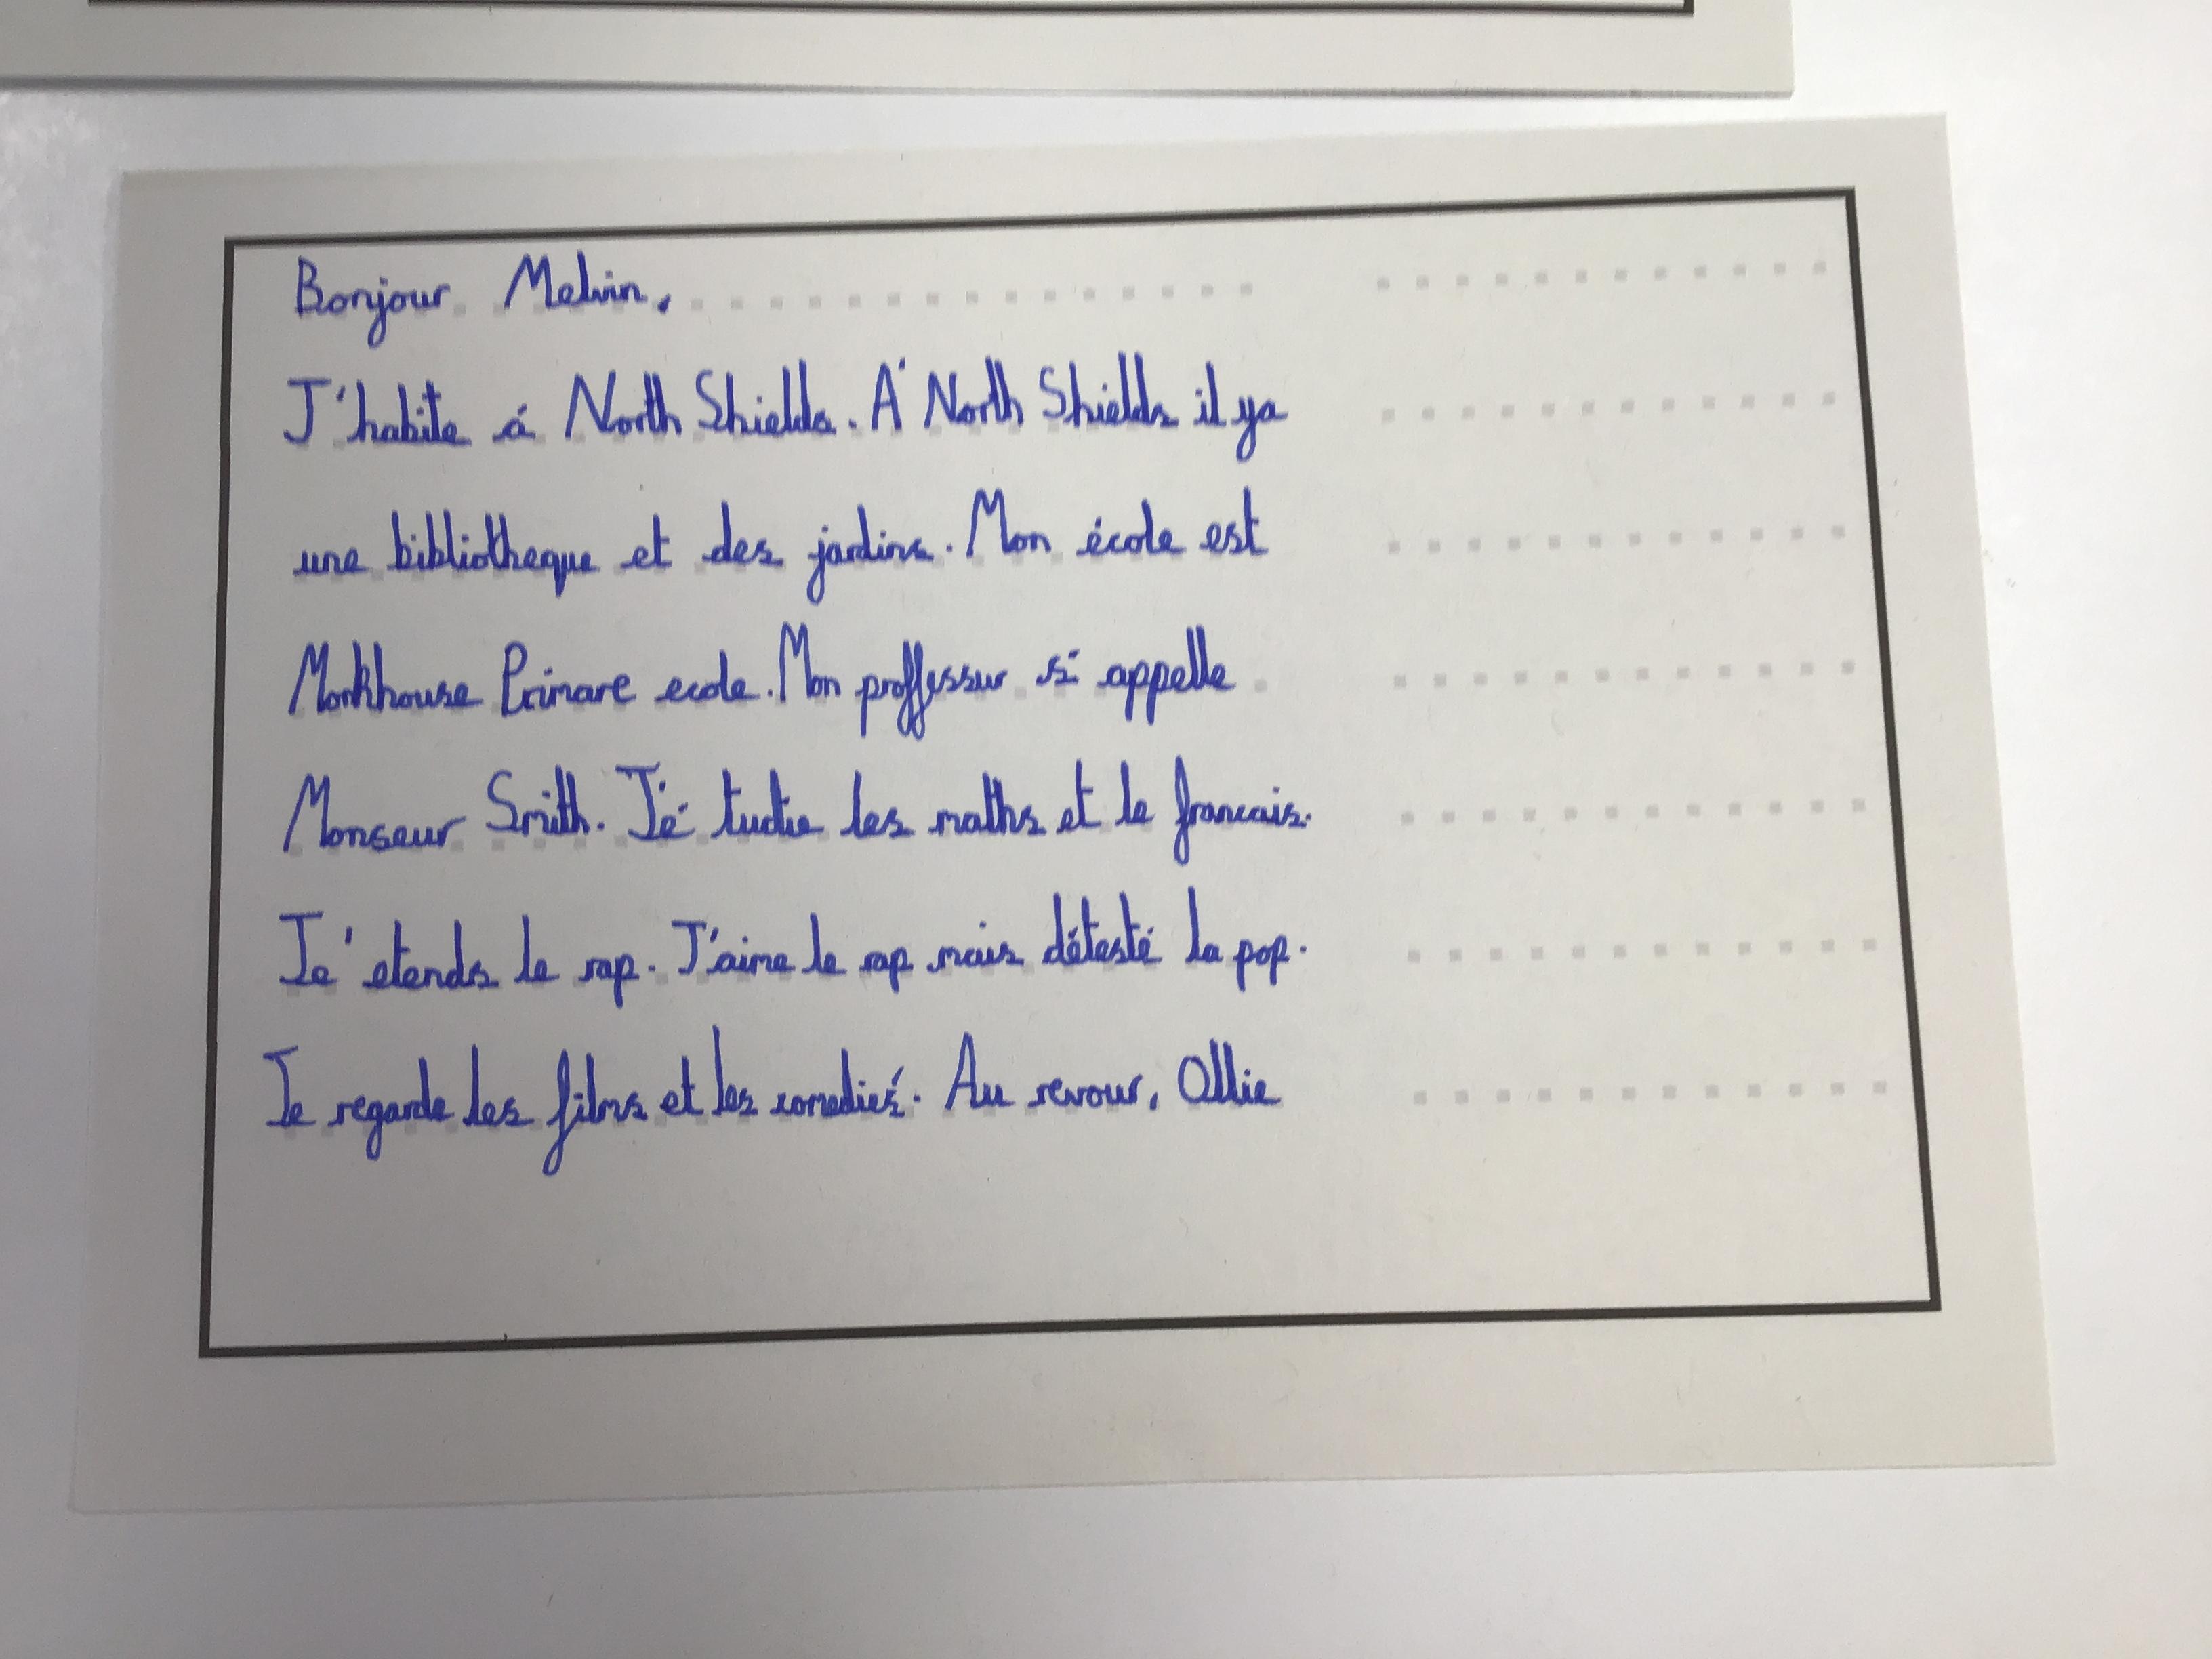 Bonjour Melvin,
J'habite á North Shields. Á North Shields il ya
une bibliotheque et des jardins. Mon école est
Monkhouse Primare ecole. Mon proffessur s'i appelle
Monseur Smith. J'é tudie les maths et le francais.
Je' etends le rap. J'aime le rap mais détesté la pop.
Je regarde les films et les comedié. Au revour, Ollie